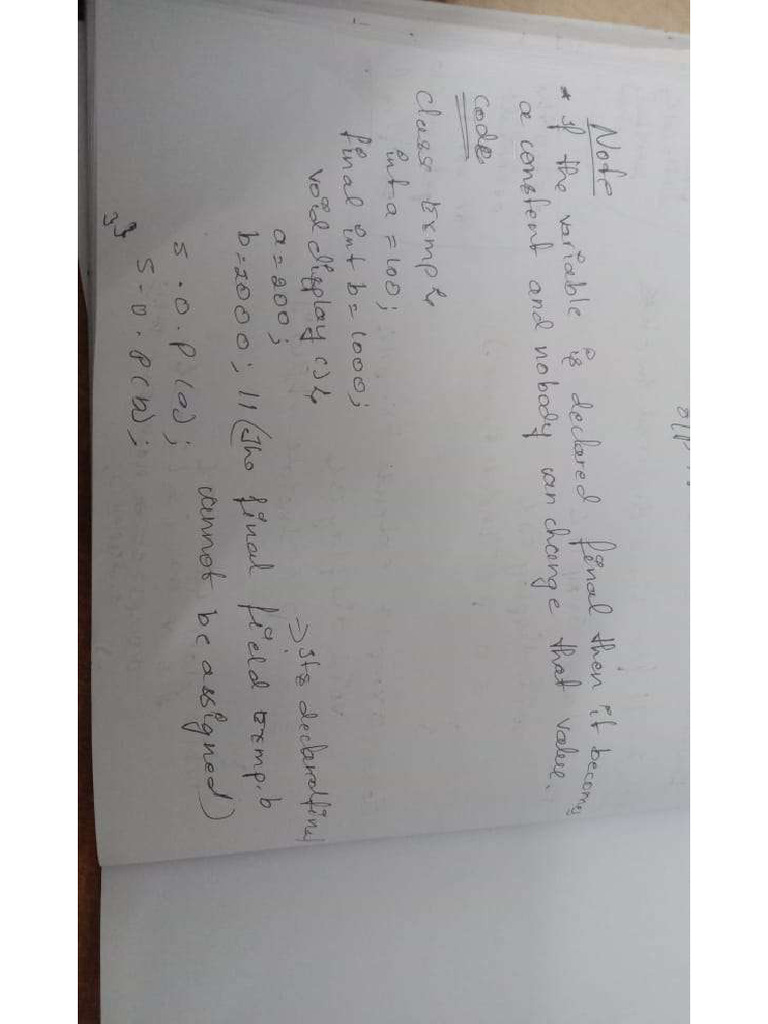 O/P
Note
* If the variable is declared final then it becomy
a constent and nobody can change that value.
Code
class Exmp {
int a = 100;
final int b = 1000;
void display () {
a = 200;
⇒ Its declared final
b = 2000; // (The final field Exmp.b
cannot be assigned)
S.O.P (a);
S.O.P (b);
}}